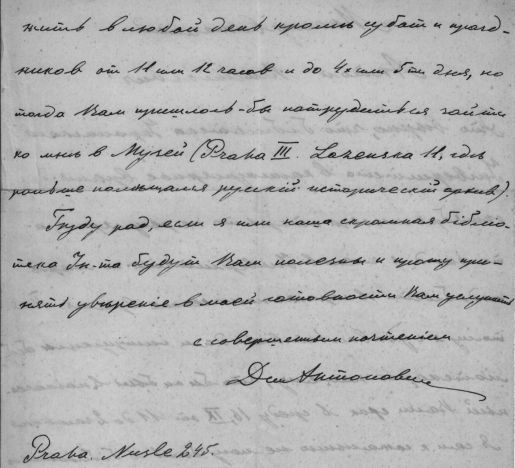 жить в любой день кроме субот и празд-
ников от 11 или 12 часов и до 4х или 5ти дня, но
тогда Вам пришлось-бы потрудиться зайти
ко мнѣ в Музей (Praha III. Lázenská 11, гдѣ
раньше помѣщался русскій историческій архив).
Буду рад, если я или наша скромная бібліо-
тека Ін-та будут Вам полезны и прошу при-
нять увѣреніе в моей готовности Вам услужить
с совершенным почтеніем
Дм Антонович
Praha. Nusle 245.